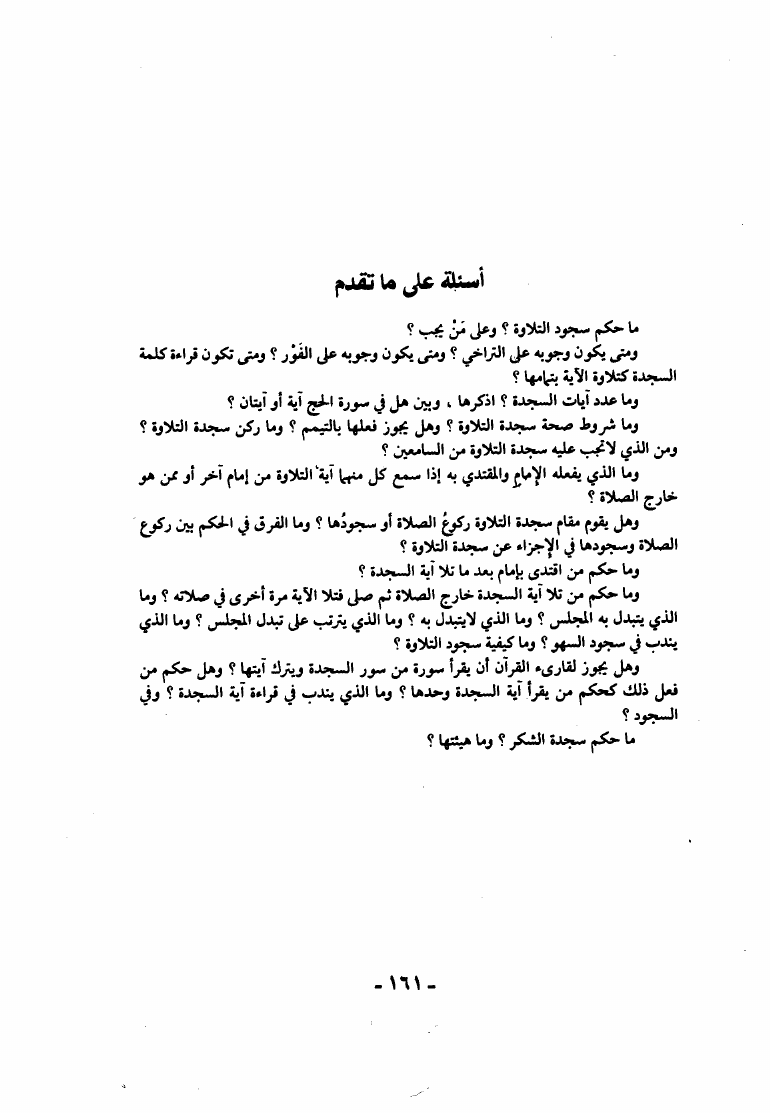 أسئلة على ما تقدم
ما حكم سجود التلاوة ؟ وعلى مَنْ يجب ؟
ومتى يكون وجوبه على التراخي ؟ ومتى يكون وجوبه على الفَوْر ؟ ومتى تكون قراءة كلمة
السجدة كتلاوة الآية بتمامها ؟
وما عدد آيات السجدة ؟ اذكرها ، وبين هل في سورة الحج آية أو آيتان ؟
وما شروط صحة سجدة التلاوة ؟ وهل يجوز فعلها بالتيمم ؟ وما ركن سجدة التلاوة ؟
ومن الذي لاتجب عليه سجدة التلاوة من السامعين ؟
وما الذي يفعله الإمام والمقتدي به إذا سمع كل منهما آية التلاوة من إمام آخر أو ممن هو
خارج الصلاة ؟
وهل يقوم مقام سجدة التلاوة ركوعُ الصلاة أو سجودُها ؟ وما الفرق في الحكم بين ركوع
الصلاة وسجودها في الإجزاء عن سجدة التلاوة ؟
وما حكم من اقتدى بإمام بعد ما تلا آية السجدة ؟
وما حكم من تلا آية السجدة خارج الصلاة ثم صلى فتلا الآية مرة أخرى في صلاته ؟ وما
الذي يتبدل به المجلس ؟ وما الذي لايتبدل به ؟ وما الذي يترتب على تبدل المجلس ؟ وما الذي
يندب في سجود السهو ؟ وما كيفية سجود التلاوة ؟
وهل يجوز لقارىء القرآن أن يقرأ سورة من سور السجدة ويترك آيتها ؟ وهل حكم من
فعل ذلك كحكم من يقرأ آية السجدة وحدها ؟ وما الذي يندب في قراءة آية السجدة ؟ وفي
السجود ؟
ما حكم سجدة الشكر ؟ وما هيئتها ؟
- ١٦١ -